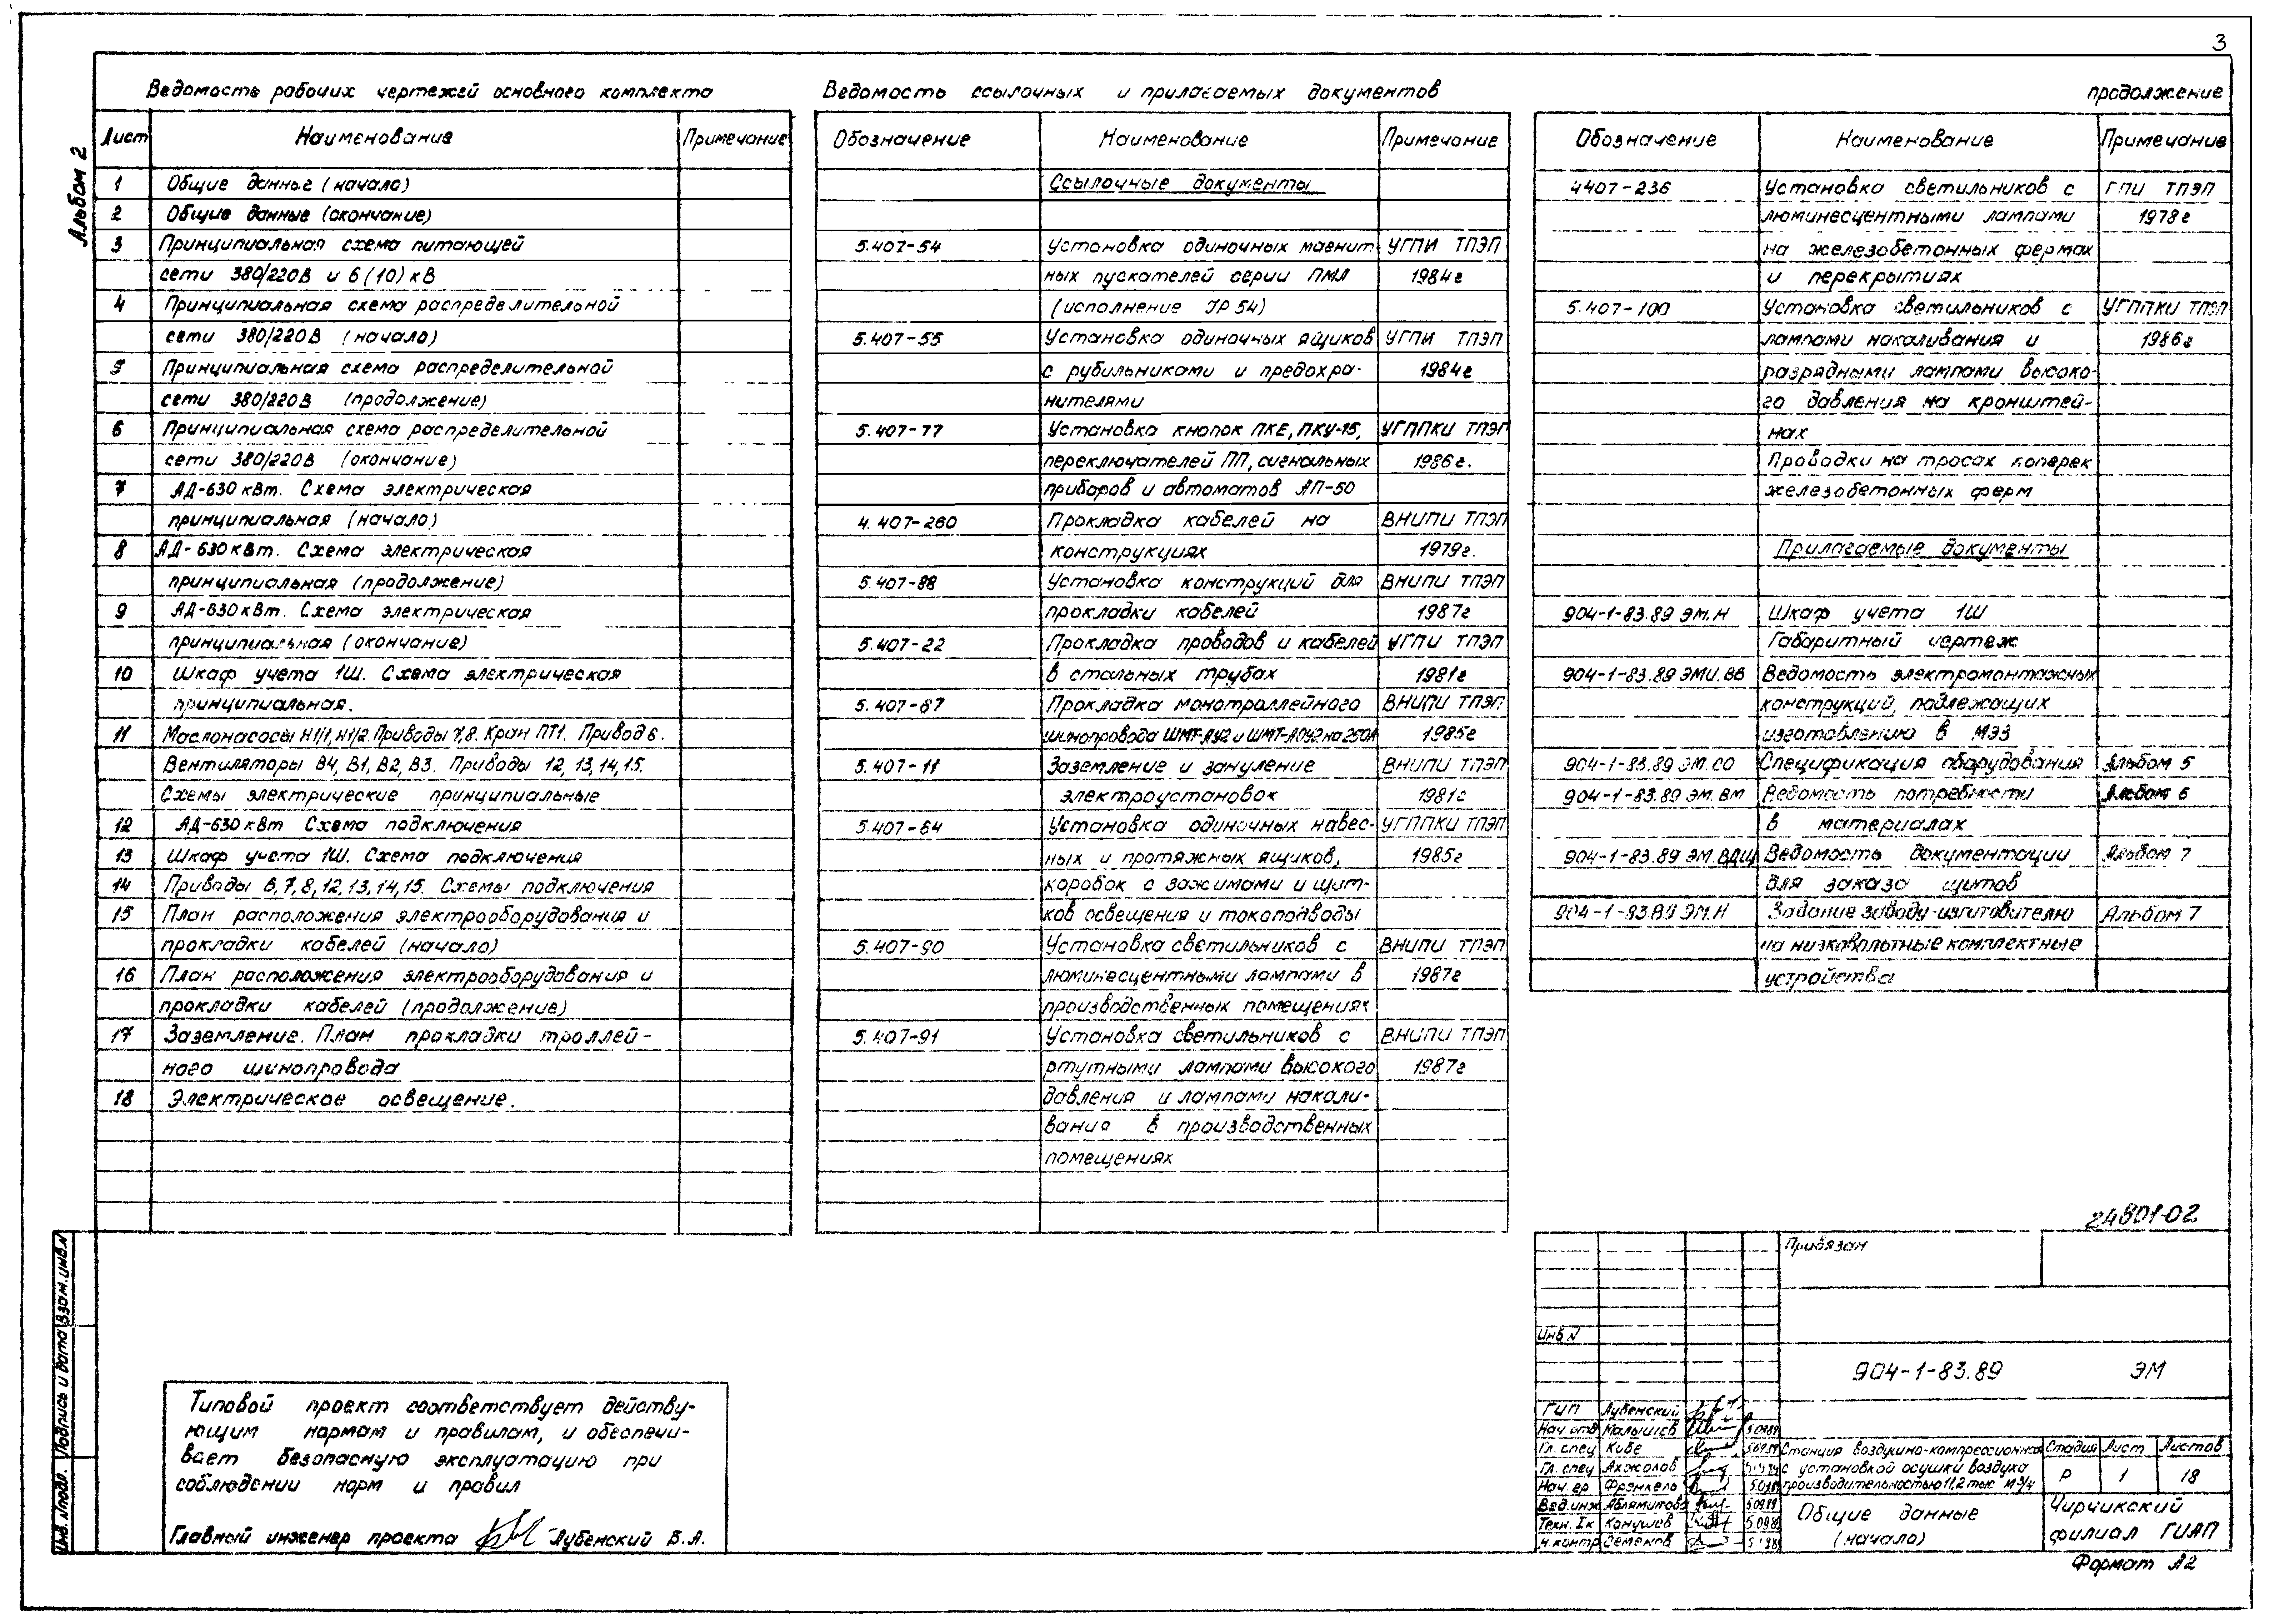 3
Альбом 2
Ведомость рабочих чертежей основного комплекта
Лист Наименования Примечание
1 Общие данные (начало)
2 Общие данные (окончание)
3 Принципиальная схема питающей
сети 380/220В и 6(10)кВ
4 Принципиальная схема распределительной
сети 380/220В (начало)
5 Принципиальная схема распределительной
сети 380/220В (продолжение)
6 Принципиальная схема распределительной
сети 380/220В (окончание)
7 АД-630кВт. Схема электрическая
принципиальная (начало)
8 АД-630кВт. Схема электрическая
принципиальная (продолжение)
9 АД-630кВт. Схема электрическая
принципиальная (окончание)
10 Шкаф учета 1Ш. Схема электрическая
принципиальная.
11 Маслонасосы Н1/1, Н1/2. Приводы 7,8. Кран ПТ1. Привод 6.
Вентиляторы В4, В1, В2, В3. Приводы 12, 13, 14, 15.
Схемы электрические принципиальные
12 АД-630кВт Схема подключения
13 Шкаф учета 1Ш. Схема подключения
14 Приводы 6, 7, 8, 12, 13, 14, 15. Схемы подключения
15 План расположения электрооборудования и
прокладки кабелей (начало)
16 План расположения электрооборудования и
прокладки кабелей (продолжение)
17 Заземление. План прокладки троллей-
ного шинопровода
18 Электрическое освещение.
Ведомость ссылочных и прилагаемых документов
Обозначение Наименование Примечание
Ссылочные документы
5.407-54 Установка одиночных магнит УГПИ ТПЭП
ных пускателей серии ПМЛ 1984г
(исполнение IP 54)
5.407-55 Установка одиночных ящиков УГПИ ТПЭП
с рубильниками и предохра- 1984г
нителями
5.407-77 Установка кнопок ПКЕ, ПКУ-15, УГППКИ ТПЭП
переключателей ПП, сигнальных 1986г.
приборов и автоматов АП-50
4.407-260 Прокладка кабелей на ВНИПИ ТПЭП
конструкциях 1979г.
5.407-88 Установка конструкций для ВНИПИ ТПЭП
прокладки кабелей 1987г
5.407-22 Прокладка проводов и кабелей УГПИ ТПЭП
в стальных трубах 1981г
5.407-67 Прокладка монотроллейного ВНИПИ ТПЭП
шинопровода ШМТ-АУ2 и ШМТ-А0У2 на 250А 1985г
5.407-11 Заземление и зануление ВНИПИ ТПЭП
электроустановок 1981г
5.407-64 Установка одиночных навес- УГППКИ ТПЭП
ных и протяжных ящиков, 1985г
коробок с зажимами и щит-
ков освещения и токоподводы
5.407-90 Установка светильников с ВНИПИ ТПЭП
люминесцентными лампами в 1987г
производственных помещениях
5.407-91 Установка светильников с ВНИПИ ТПЭП
ртутными лампами высокого 1987г
давления и лампами накали-
вания в производственных
помещениях
продолжение
Обозначение Наименование Примечание
4407-236 Установка светильников с ГПИ ТПЭП
люминесцентными лампами 1978г
на железобетонных фермах
и перекрытиях
5.407-100 Установка светильников с УГППКИ ТПЭП
лампами накаливания и 1986г
разрядными лампами высоко-
го давления на кронштей-
нах
Проводки на тросах поперек
железобетонных ферм
Прилагаемые документы
904-1-83.89 ЭМ.Н Шкаф учета 1Ш
Габаритный чертеж
904-1-83.89 ЭМИ.ВБ Ведомость электромонтажных
конструкций, подлежащих
изготовлению в МЭЗ
904-1-83.89 ЭМ.СО Спецификация оборудования Альбом 5
904-1-83.89 ЭМ.ВМ Ведомость потребности Альбом 6
в материалах
904-1-83.89 ЭМ.ВДЩ Ведомость документации Альбом 7
для заказа щитов
904-1-83.89 ЭМ.Н Задание заводу-изготовителю Альбом 7
на низковольтные комплектные
устройства
24801-02
Привязан
Инв N
904-1-83.89 ЭМ
ГИП Лубенский
Нач. отд Малышев 5.0989
Гл. спец Кибе
Гл. спец Ахжолов
Нач. гр Френкель
Вед. инж Аблямитова 5.0989
Техн. Iк Конушев 5.0989
Н. контр Семенов
Станция воздушно-компрессионная
с установкой осушки воздуха
производительностью 11,2 тыс м3/ч
Стадия Лист Листов
Р 1 18
Общие данные
(начало)
Чирчикский
филиал ГИАП
Формат А2
Типовой проект соответствует действу-
ющим нормам и правилам, и обеспечи-
вает безопасную эксплуатацию при
соблюдении норм и правил
Главный инженер проекта Лубенский В.А.
Инв. N подл. Подпись и дата Взам. инв. N